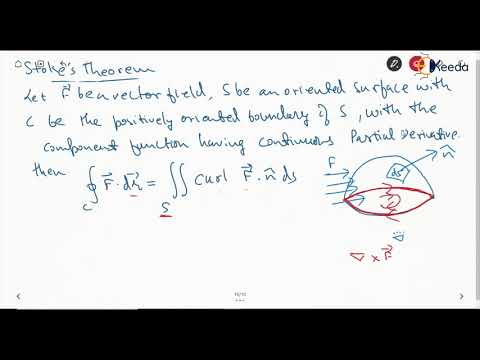 Stoke's Theorem
Keeda
Let F⃗ be a vector field, S be an oriented surface with
C be the positively oriented boundary of S, with the
component function having continuous Partial Derivative.
then ∮_C F⃗ · dr⃗ = ∬_S curl F⃗ · n̂ ds
F
ds
n̂
∇ × F⃗